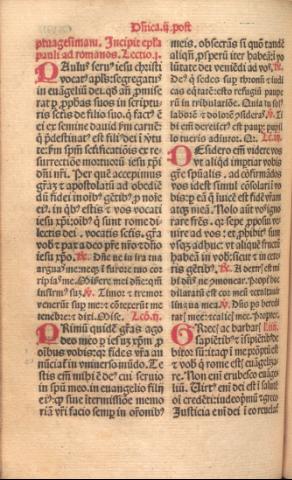 Dñica.ij.post
ptuagesimam. Incipit epľa
pauli ad romanos. Lectio.j.
Paulus seruꝰ iesu christi
vocatꝰ apľs: segregatus
in euãgeliũ dei. qđ añ ꝓmise
rat ꝑ ꝓphãs suos in scriptu
ris sctis de filio suo. q̃ factꝰ ẽ
ei ex semine dauid ẽm carnẽ:
q̃ p̃destinatꝰ est filiꝰ dei ĩ vtu
te: ẽm spm̃ sctificatiõis ex re
surrectiõe mortuoꝝ iesu xp̃i
dñi nr̃i. Per quẽ accepimus
gr̃az ⁊ apostolatũ ad obediẽ
dũ fidei ĩ oĩbꝰ gẽtibꝰ, ꝓ noĩe
eiꝰ. in q̃bꝰ estis ⁊ vos vocati
iesu xp̃i: oĩbꝰ q̃ sunt rome di
lectis dei. vocatis sctis. gr̃a
vob̃ ⁊ pax a deo pr̃e nr̃o ⁊ dño
iesu xp̃o. ℟. Dñe ne in ira tua
arguas me: neqꝫ ĩ furore tuo cor
ripias me. Miserere mei dñe: qm̃
infirmꝰ suꝫ. ℣. Timor ⁊ tremor
venerũt suꝑ me: ⁊ cõtexerũt me
tenebre: ⁊ dixi. Mise. Lcõ.ij.
Primũ quidẽ gr̃as ago
deo meo ꝑ iesuꝫ xp̃m ꝓ
oĩbus vobis: qꝛ fides vr̃a an
nũciat in vniuerso mũdo. Te
stis em̃ mihi ẽ deꝰ cui seruio
in spũ meo. in euangelio filij
eiꝰ: qꝫ sine itermissiõe memo
riã vr̃i facio semꝑ in oriõnibꝰ
meis. obsecrãs si quo tandẽ
aliqñ ꝓsperũ iter habeã ĩ vo
lũtate dei veniẽdi ad vos. ℟.
Deꝰ q̃ sedes suꝑ thronũ ⁊ iudi
cas eq̃tatẽ: esto refugiũ pauꝑ
rũ in tribulatiõe. Quia tu solꝰ
laborẽ ⁊ dolorẽ ꝯsideras. ℣. Ti
bi em̃ derelictꝰ est pauꝑ: pupil
lo tu eris adiutor. Lcõ.iij.
Desidero em̃ videre vos
vt aliqd imꝑtiar vobis
gr̃e spũalis. ad cõfirmãdos
vos idest simul cõsolari vo
bis: ꝑ eã q̃ inuicẽ est fidẽ vr̃am
atqꝫ meã. Nolo aũt vos igno
rare fr̃es. qꝛ sepe ꝓposui ve
nire ad vos: ⁊ ꝓhibitꝰ sum
vsqꝫ adhuc: vt aliquẽ fructũ
habeã in vob̃: sicut ⁊ in cete
ris gẽtibꝰ.
Grecis ac barbaris
sapiẽtibꝰ ⁊ isipiẽtibꝰ de
bitor suꝫ: ita qđ ĩ me ꝓmptũ est
⁊ vob̃ q̃ rome estis euãgeliza
re. Non em̃ erubesco euãge
liũ. Virtꝰ em̃ dei est ĩ salutẽ
oĩ credẽti: iudeo p̃mũ ⁊ greco
Justicia em̃ dei ĩ eo reuelat